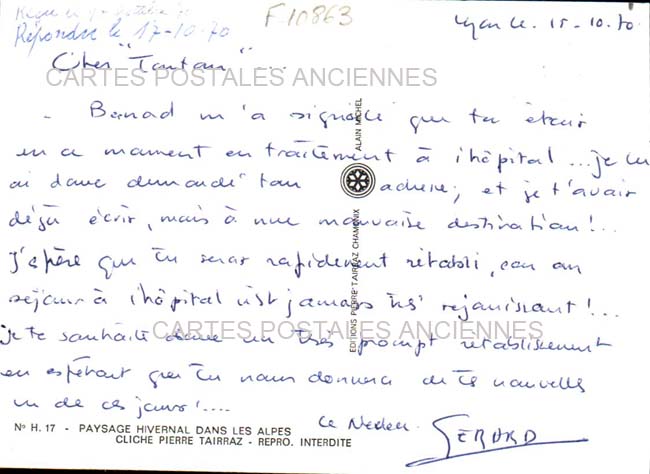 Répondre le 17-10-70
F 10863
Lyon le 15-10.70
Cher "Tonton"...
CARTES POSTALES ANCIENNES
- m'a signalé que tu étais
en ce moment en traitement à l'hôpital... je lui
ai donc demandé ton adresse, et je t'avais
déjà écrit, mais à une mauvaise destination!...
J'espère que tu seras rapidement rétabli, car un
séjour à l'hôpital n'est jamais très réjouissant!...
CARTES POSTALES ANCIENNES
je te souhaite donc un très prompt rétablissement
en espérant que tu nous donnera de tes nouvelles
un de ces jours!....
Le Neveu
GERARD
N° H. 17 - PAYSAGE HIVERNAL DANS LES ALPES
CLICHE PIERRE TAIRRAZ - REPRO. INTERDITE
EDITIONS PIERRE TAIRRAZ CHAMONIX
ALAIN MICHEL